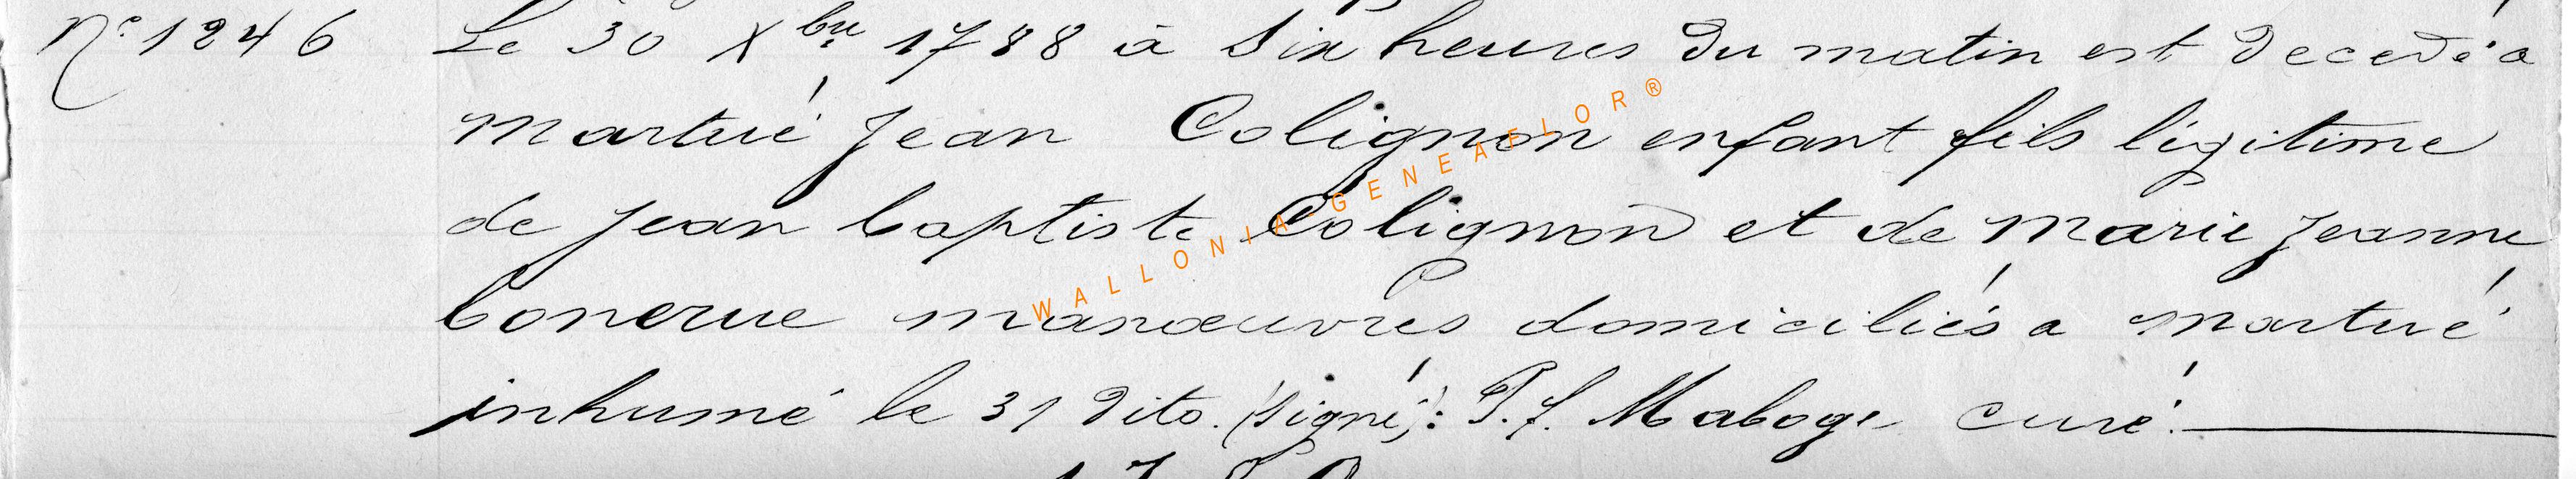 N.º 1246 Le 30 Xbre 1788 à Six heures du matin est decedé a
martué Jean Colignon enfant fils légitime
de Jean baptiste Colignon et de Marie Jeanne
bonerue manœuvres domiciliés a martué
inhumé le 31 dito. (signé): P. J. Maboge curé.
WALLONIA-GENEAFLOR®